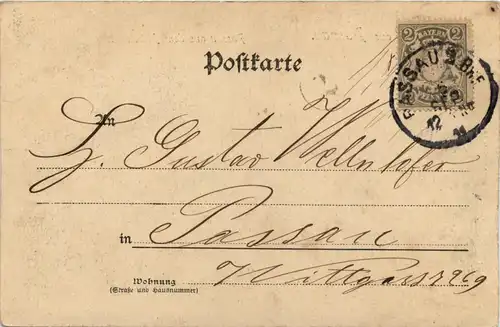 2 BAYERN 2
PASSAU 2. B.
Postkarte
An
H. Gustav Wellnhofer
in Passau
Wohnung
(Straße und Hausnummer)
Wittgasse 269